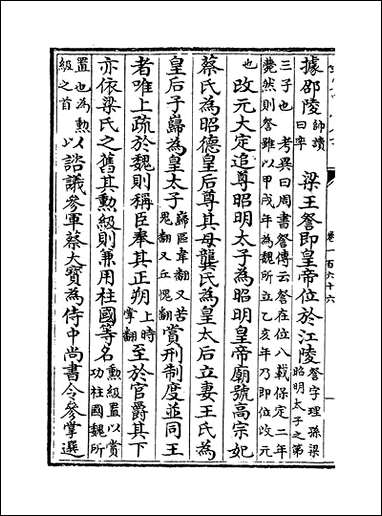 據邵陵帥讀曰率 梁王詧即皇帝位於江陵詧字理孫梁昭明太子之第
三子也 考異曰周書詧傳云詧在位八載保定二年
薨然則詧雖以甲戌年為魏所立乙亥年乃即位改元
也 改元大定追尊昭明太子為昭明皇帝廟號高宗妃
蔡氏為昭德皇后尊其母龔氏為皇太后立妻王氏為
皇后子巋為皇太子巋區韋翻又苦鬼翻又丘愧翻賞刑制度並同王
者唯上疏於魏則稱臣奉其正朔上時掌翻至於官爵其下
亦依梁氏之舊其勲級則兼用柱國等名勲級置以賞功柱國魏所
置也為勲級之首以諮議參軍蔡大寶為侍中尚書令參掌選
卷一百六十六